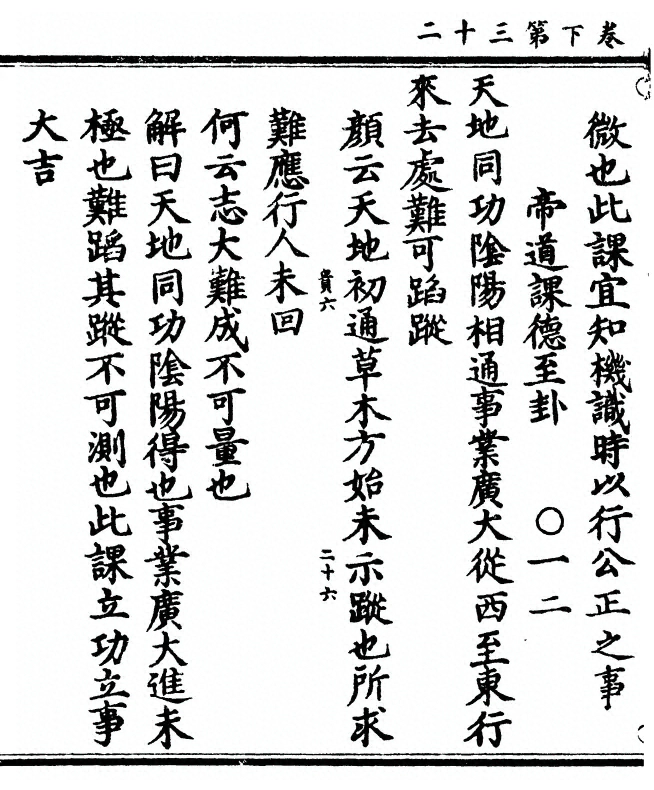 卷下第三十二
微也此課宜知機識時以行公正之事
帝道課德至卦 〇一二
天地同功陰陽相通事業廣大從西至東行
來去處難可蹈蹤
顏云天地初通草木方始未示蹤也所求
貴六
二十六
難應行人未回
何云志大難成不可量也
解曰天地同功陰陽得也事業廣大進未
極也難蹈其蹤不可測也此課立功立事
大吉